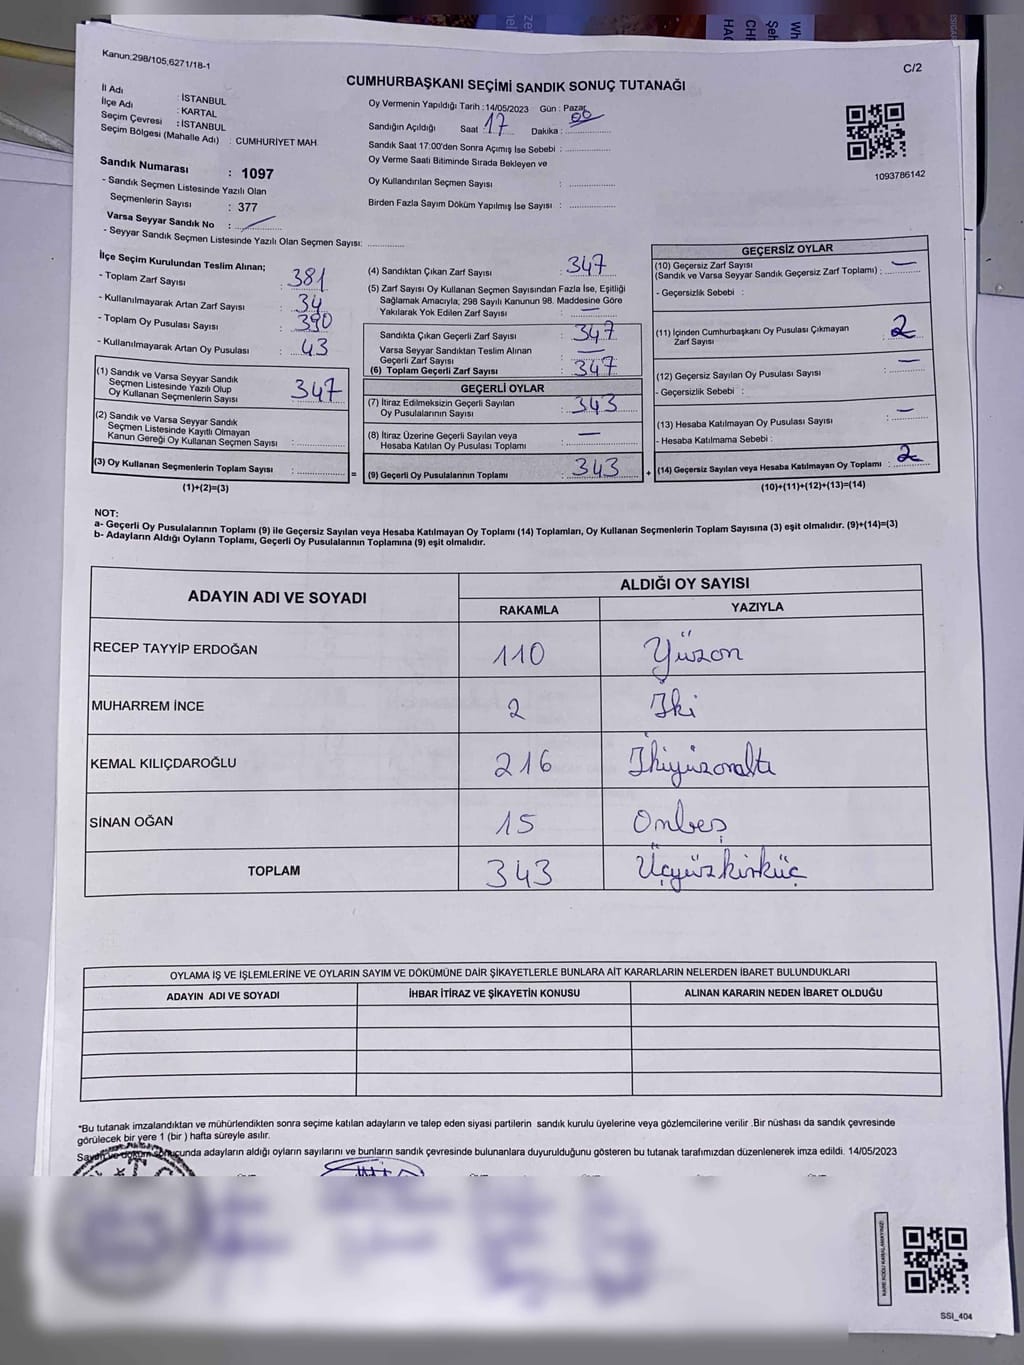 Kanun;298/105,6271/18-1
C/2
CUMHURBAŞKANI SEÇİMİ SANDIK SONUÇ TUTANAĞI
İl Adı : İSTANBUL
İlçe Adı : KARTAL
Seçim Çevresi : İSTANBUL
Seçim Bölgesi (Mahalle Adı) : CUMHURİYET MAH.
Oy Vermenin Yapıldığı Tarih :14/05/2023 Gün : Pazar
Sandığın Açıldığı Saat :17 Dakika : 00
Sandık Saat 17:00'den Sonra Açımış İse Sebebi :
Oy Verme Saati Bitiminde Sırada Bekleyen ve
Oy Kullandırılan Seçmen Sayısı :
Birden Fazla Sayım Döküm Yapılmış İse Sayısı :
1093786142
Sandık Numarası : 1097
- Sandık Seçmen Listesinde Yazılı Olan
Seçmenlerin Sayısı : 377
Varsa Seyyar Sandık No :
- Seyyar Sandık Seçmen Listesinde Yazılı Olan Seçmen Sayısı:
İlçe Seçim Kurulundan Teslim Alınan;
- Toplam Zarf Sayısı : 381
- Kullanılmayarak Artan Zarf Sayısı : 34
- Toplam Oy Pusulası Sayısı : 390
- Kullanılmayarak Artan Oy Pusulası : 43
(1) Sandık ve Varsa Seyyar Sandık
Seçmen Listesinde Yazılı Olup
Oy Kullanan Seçmenlerin Sayısı : 347
(2) Sandık ve Varsa Seyyar Sandık
Seçmen Listesinde Kayıtlı Olmayan
Kanun Gereği Oy Kullanan Seçmen Sayısı :
(3) Oy Kullanan Seçmenlerin Toplam Sayısı :
(1)+(2)=(3)
(4) Sandıktan Çıkan Zarf Sayısı : 347
(5) Zarf Sayısı Oy Kullanan Seçmen Sayısından Fazla İse, Eşitliği
Sağlamak Amacıyla; 298 Sayılı Kanunun 98. Maddesine Göre
Yakılarak Yok Edilen Zarf Sayısı : —
Sandıkta Çıkan Geçerli Zarf Sayısı : 347
Varsa Seyyar Sandıktan Teslim Alınan
Geçerli Zarf Sayısı : —
(6) Toplam Geçerli Zarf Sayısı : 347
GEÇERLİ OYLAR
(7) İtiraz Edilmeksizin Geçerli Sayılan
Oy Pusulalarının Sayısı : 343
(8) İtiraz Üzerine Geçerli Sayılan veya
Hesaba Katılan Oy Pusulası Toplamı : —
= (9) Geçerli Oy Pusulalarının Toplamı : 343 +
GEÇERSİZ OYLAR
(10) Geçersiz Zarf Sayısı
(Sandık ve Varsa Seyyar Sandık Geçersiz Zarf Toplamı) : —
- Geçersizlik Sebebi :
(11) İçinden Cumhurbaşkanı Oy Pusulası Çıkmayan
Zarf Sayısı : 2
(12) Geçersiz Sayılan Oy Pusulası Sayısı : —
- Geçersizlik Sebebi :
(13) Hesaba Katılmayan Oy Pusulası Sayısı : —
- Hesaba Katılmama Sebebi :
(14) Geçersiz Sayılan veya Hesaba Katılmayan Oy Toplamı : 2
(10)+(11)+(12)+(13)=(14)
NOT:
a- Geçerli Oy Pusulalarının Toplamı (9) ile Geçersiz Sayılan veya Hesaba Katılmayan Oy Toplamı (14) Toplamları, Oy Kullanan Seçmenlerin Toplam Sayısına (3) eşit olmalıdır. (9)+(14)=(3)
b- Adayların Aldığı Oyların Toplamı, Geçerli Oy Pusulalarının Toplamına (9) eşit olmalıdır.
ADAYIN ADI VE SOYADI
ALDIĞI OY SAYISI
RAKAMLA YAZIYLA
RECEP TAYYİP ERDOĞAN 110 Yüzon
MUHARREM İNCE 2 İki
KEMAL KILIÇDAROĞLU 216 İkiyüzonaltı
SİNAN OĞAN 15 Onbeş
TOPLAM 343 Üçyüzkırküç
OYLAMA İŞ VE İŞLEMLERİNE VE OYLARIN SAYIM VE DÖKÜMÜNE DAİR ŞİKAYETLERLE BUNLARA AİT KARARLARIN NELERDEN İBARET BULUNDUKLARI
ADAYIN ADI VE SOYADI İHBAR İTİRAZ VE ŞİKAYETİN KONUSU ALINAN KARARIN NEDEN İBARET OLDUĞU
"Bu tutanak imzalandıktan ve mühürlendikten sonra seçime katılan adayların ve talep eden siyasi partilerin sandık kurulu üyelerine veya gözlemcilerine verilir .Bir nüshası da sandık çevresinde
görülecek bir yere 1 (bir ) hafta süreyle asılır.
Sayım ve döküm sonucunda adayların aldığı oyların sayılarını ve bunların sandık çevresinde bulunanlara duyurulduğunu gösteren bu tutanak tarafımızdan düzenlenerek imza edildi. 14/05/2023
KARE KODU KARALAMAYINIZ!
SSI_404